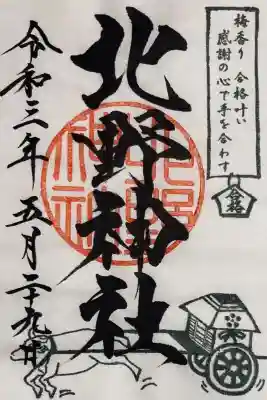 梅香り 合格叶い
感謝の心で手を合わす
合格
北野神社
北野神社
令和三年 五月二十九日